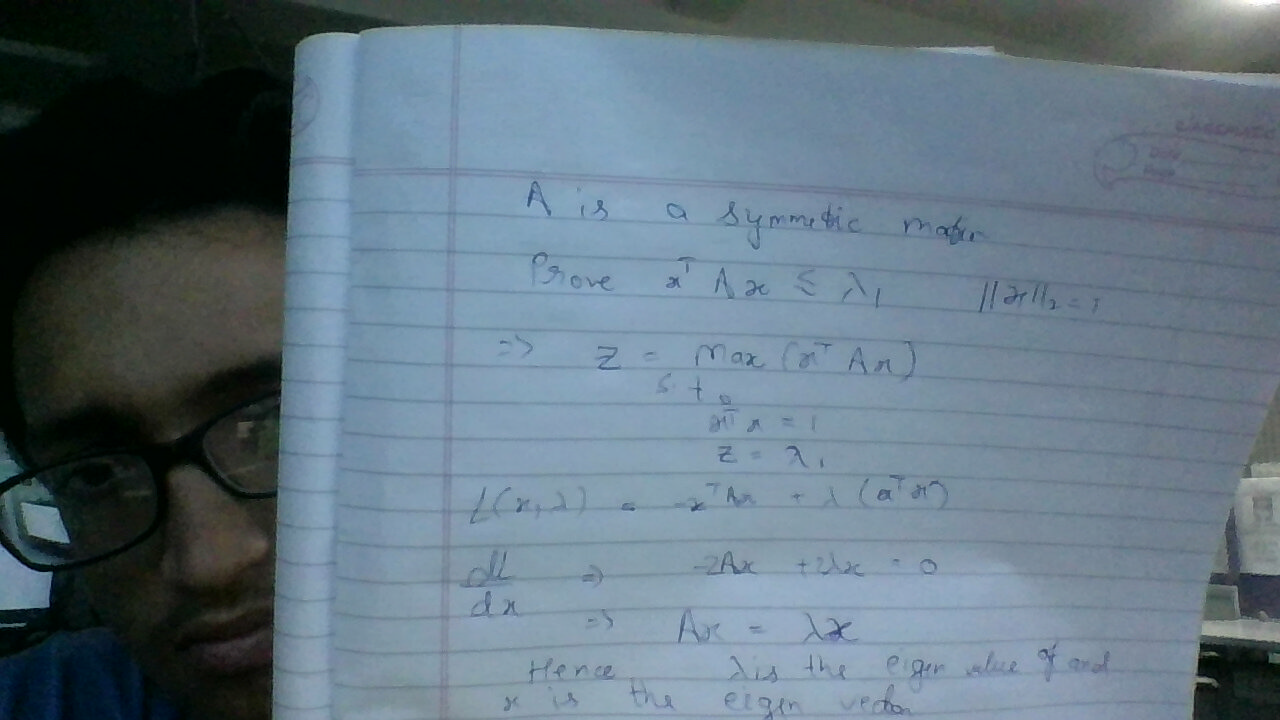 A is a symmetric matrix
Prove xᵀAx ≤ λ₁ ||x||₂ = 1
=> Z = Max (xᵀAx)
s.t.
xᵀx = 1
Z = λ₁
L(x,λ) = -xᵀAx + λ(xᵀx)
dL/dx => -2Ax + 2λx = 0
=> Ax = λx
Hence λ is the eigen value of and
x is the eigen vector